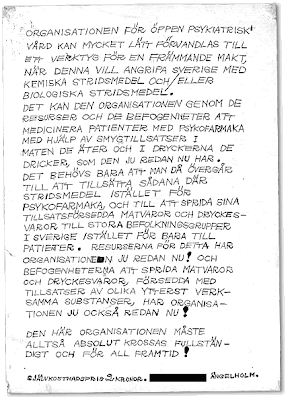 ORGANISATIONEN FÖR ÖPPEN PSYKIATRISK
VÅRD KAN MYCKET LÄTT FÖRVANDLAS TILL
ETT VERKTYG FÖR EN FRÄMMANDE MAKT,
NÄR DENNA VILL ANGRIPA SVERIGE MED
KEMISKA STRIDSMEDEL OCH/ELLER
BIOLOGISKA STRIDSMEDEL.
DET KAN DEN ORGANISATIONEN GENOM DE
RESURSER OCH DE BEFOGENHETER ATT
MEDICINERA PATIENTER MED PSYKOFARMAKA
MED HJÄLP AV SMYGTILLSATSER I
MATEN DE ÄTER OCH I DRYCKERNA DE
DRICKER, SOM DEN JU REDAN NU HAR.
DET BEHÖVS BARA ATT MAN DÅ ÖVERGÅR
TILL ATT TILLSÄTTA SÅDANA DÄR
STRIDSMEDEL ISTÄLLET FÖR
PSYKOFARMAKA, OCH TILL ATT SPRIDA SINA
TILLSATSFÖRSEDDA MATVAROR OCH DRYCKES-
VAROR TILL STORA BEFOLKNINGSGRUPPER
I SVERIGE ISTÄLLET FÖR BARA TILL
PATIENTER. RESURSERNA FÖR DETTA HAR
ORGANISATIONEN JU REDAN NU! OCH
BEFOGENHETERNA ATT SPRIDA MATVAROR
OCH DRYCKESVAROR, FÖRSEDDA MED
TILLSATSER AV OLIKA YTTERST VERK-
SAMMA SUBSTANSER, HAR ORGANISA-
TIONEN JU OCKSÅ REDAN NU!
DEN HÄR ORGANISATIONEN MÅSTE
ALLTSÅ ABSOLUT KROSSAS FULLSTÄN-
DIGT OCH FÖR ALL FRAMTID!
SJÄLVKOSTNADSPRIS 2 KRONOR. ÄNGELHOLM.